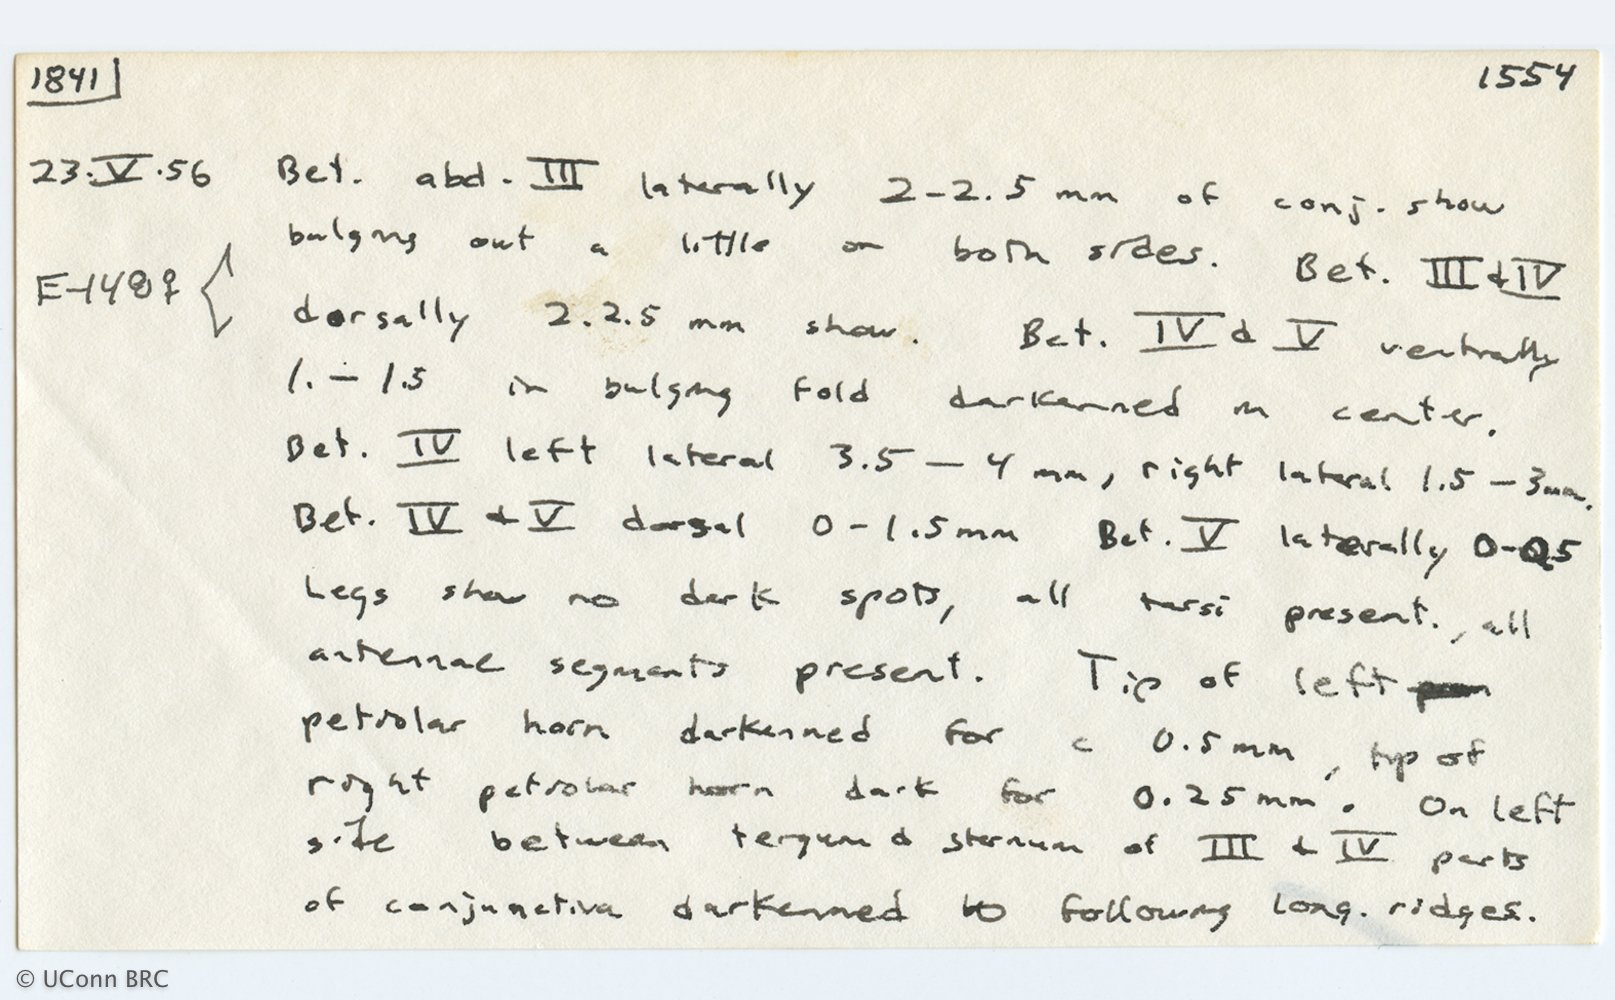 1841 1554
23.V.56 Bet. abd. III laterally 2-2.5 mm of conj. show
bulging out a little on both sides. Bet. III & IV
E-148♀ dorsally 2.2.5 mm show. Bet. IV & V ventrally
1. – 1.5 in bulging fold darkenned in center.
Bet. IV left lateral 3.5 – 4 mm, right lateral 1.5 – 3mm.
Bet. IV & V dorsal 0 – 1.5mm Bet. V laterally 0-0.5
Legs show no dark spots, all tarsi present., all
antennae segments present. Tip of left
petiolar horn darkenned for c 0.5mm, tip of
right petiolar horn dark for 0.25mm. On left
side between tergum & sternum of III & IV parts
of conjunctiva darkenned to following long. ridges.
© UConn BRC